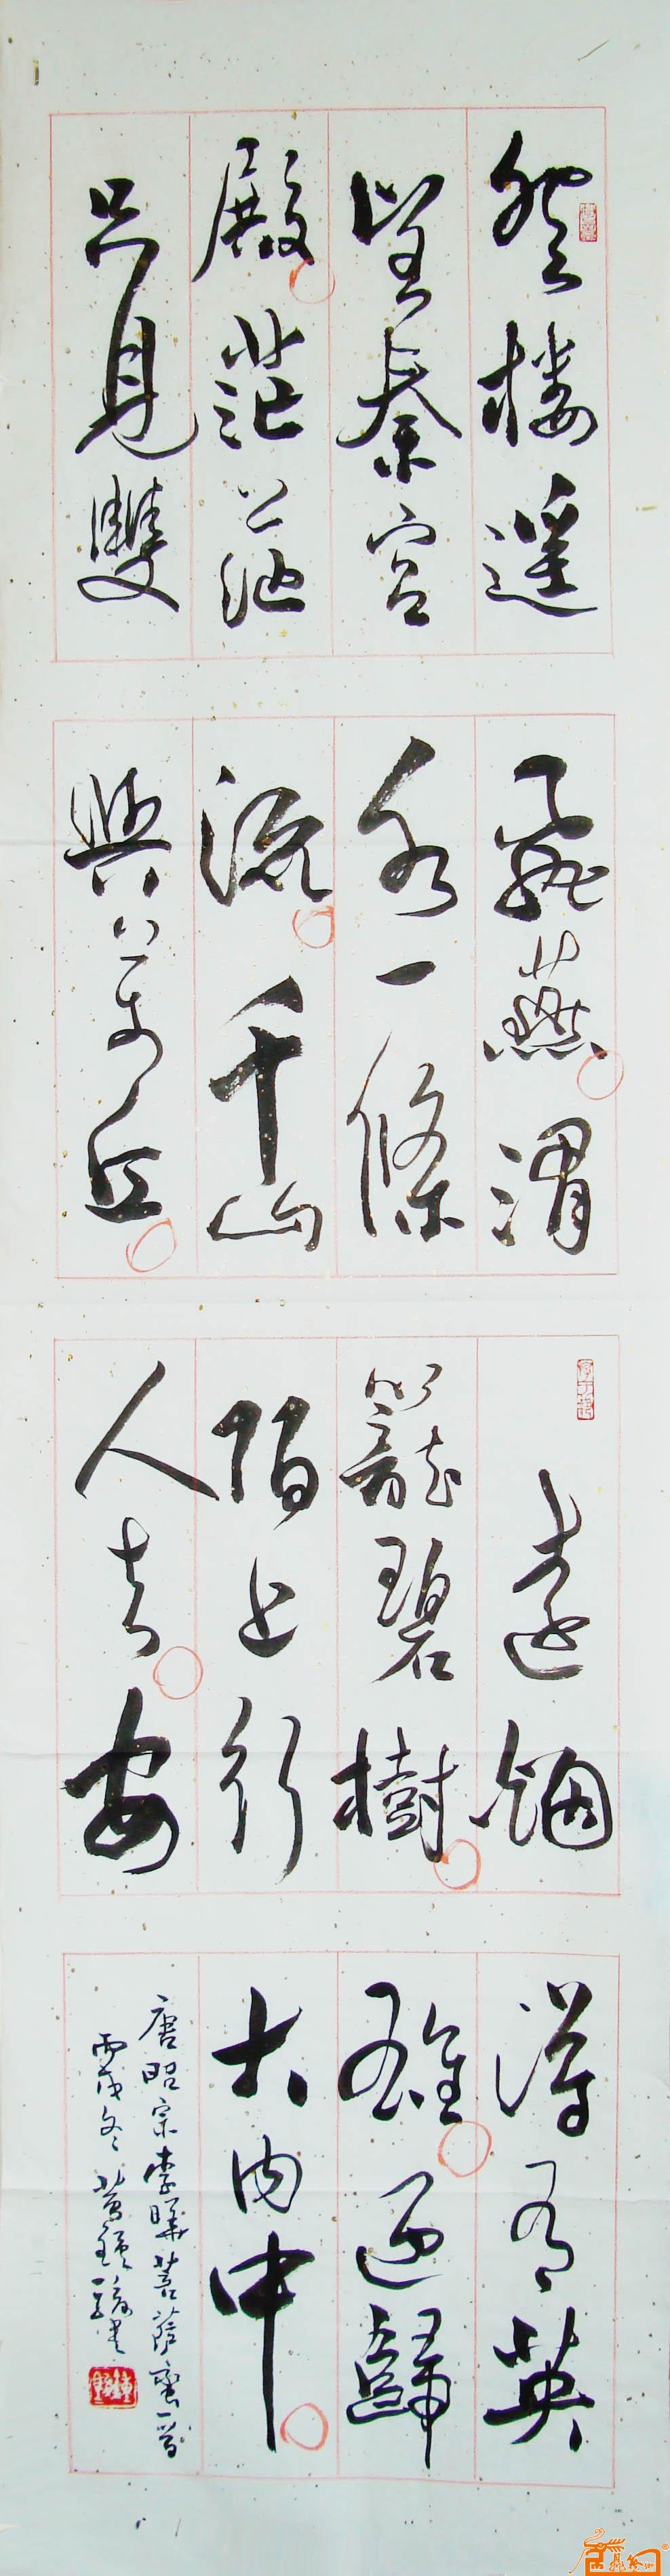 登樓遥
望秦宫
殿茫茫
只見雙
飛燕渭
水一條
流千山
與萬丘
遠烟
籠碧樹
陌上行
人去安
得有英
雄迎歸
大内中
唐昭宗李曄菩薩蠻一首
丙戌冬